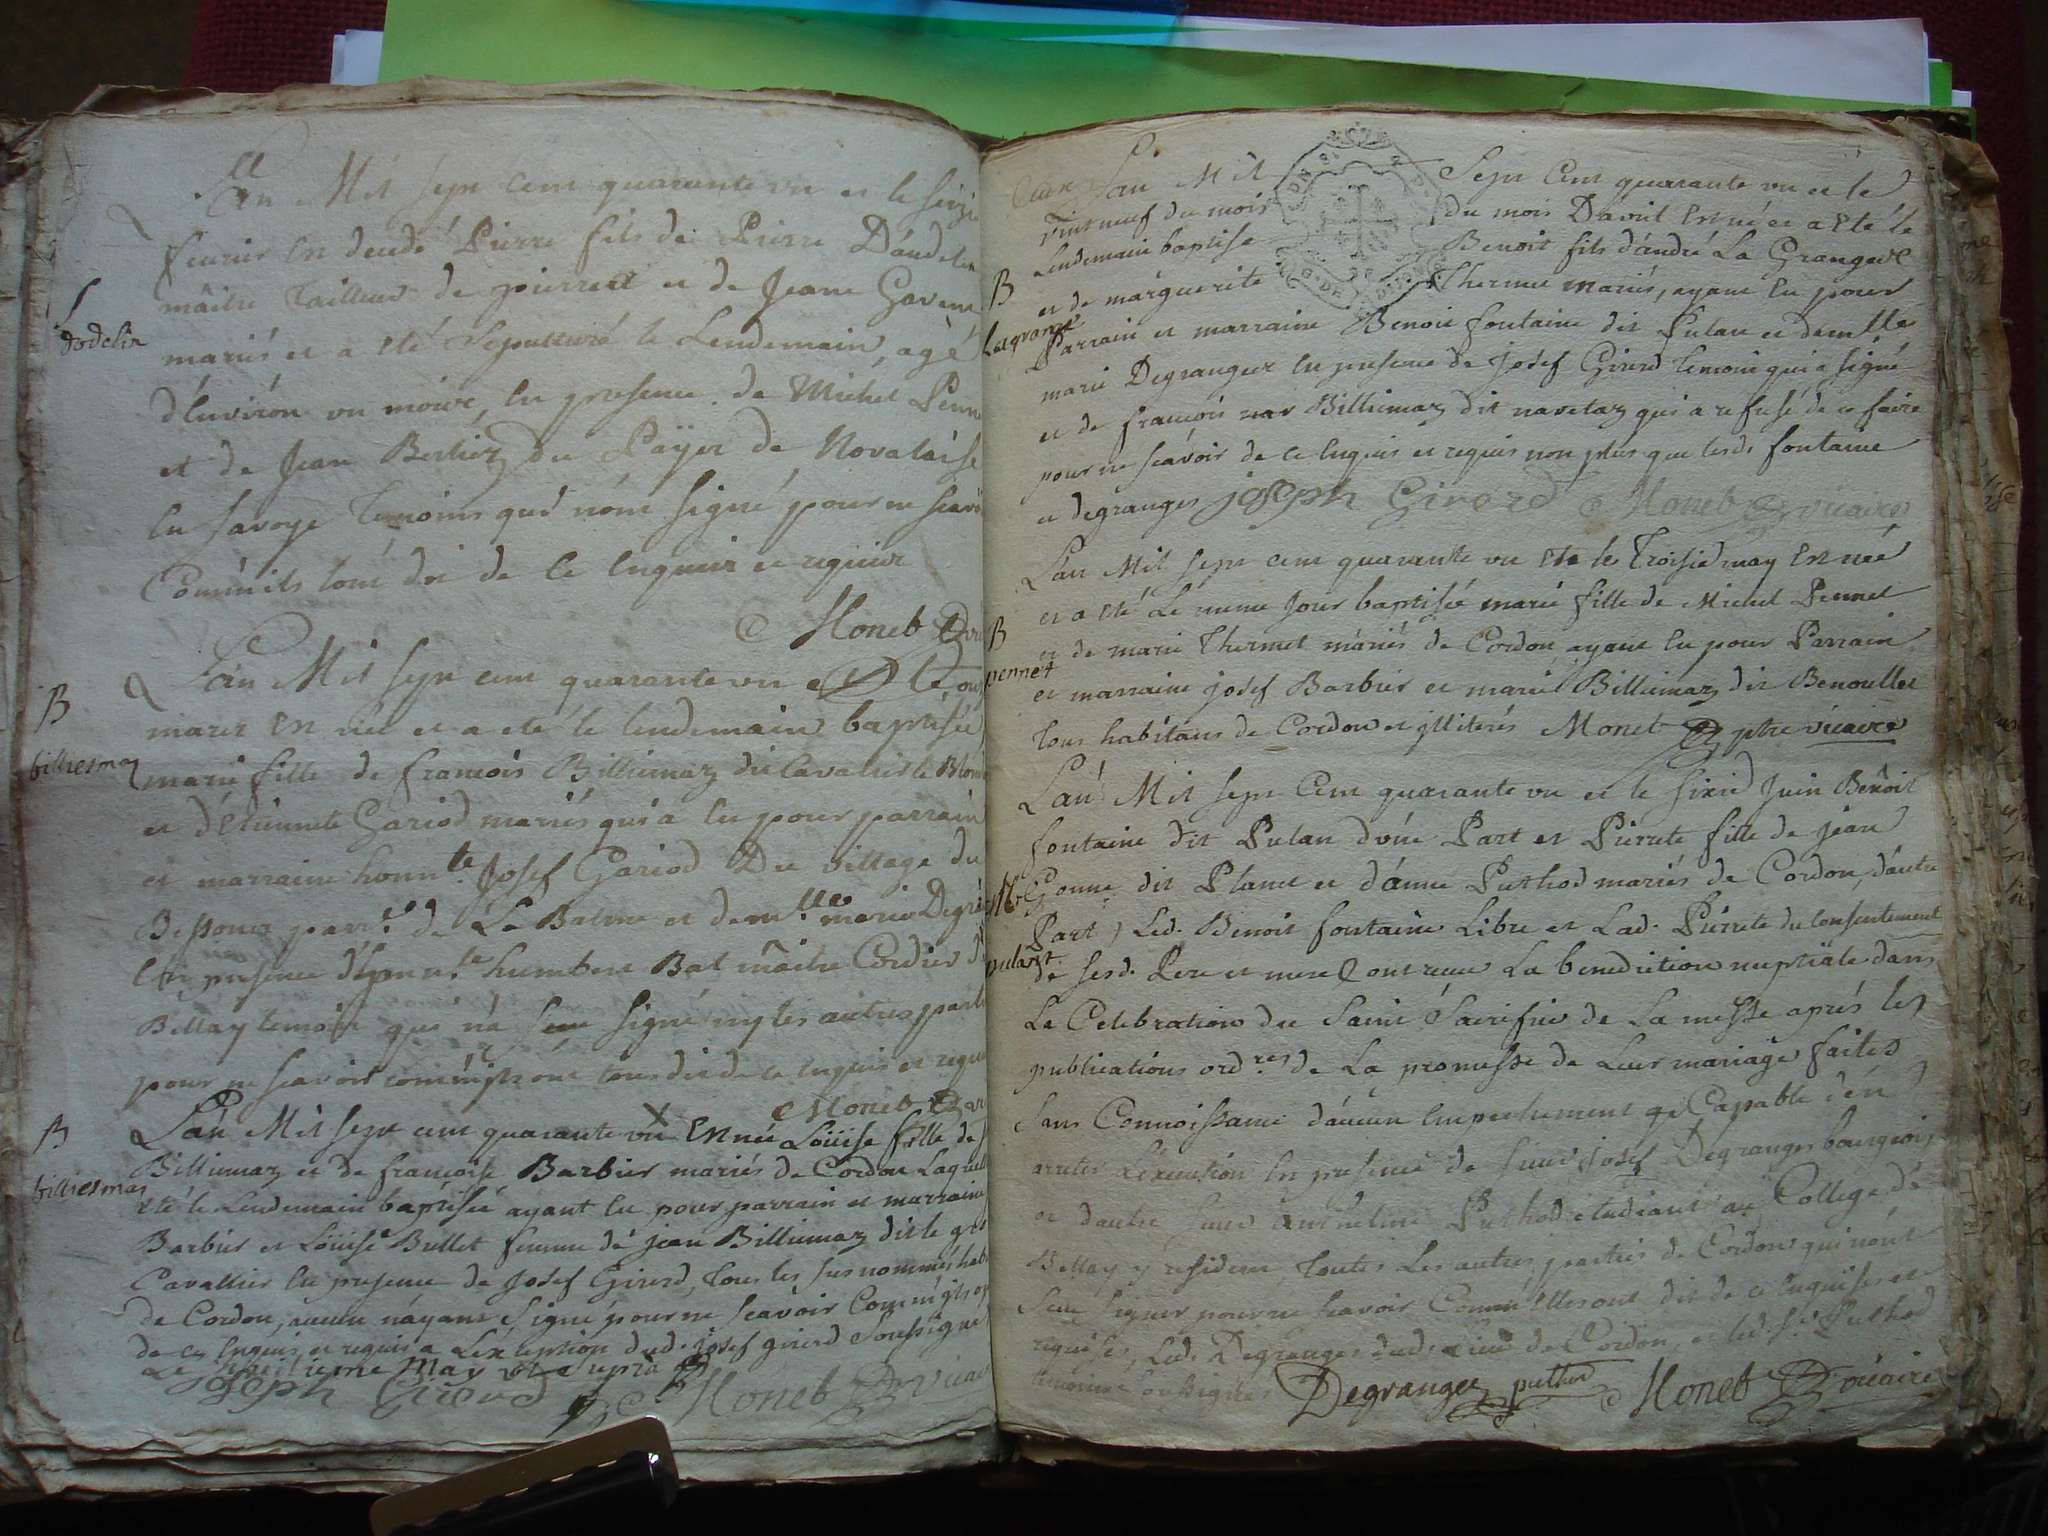 Lan Mil sept cent quarante un et le seizie
feurier En decedé Pierre fils de Pierre Daudelin
mâitre Tailleur de pierrett et de Jeane Gavene
mariés et a eté sepulturé le Lendemain, agé
d'Environ un mois, En presence de Michel Penn
et de Jean Berliez du Païjer de Novalaise
En savoye Temoins qui n'ont signé pour ne scavo
Comm'ils l'ont dit de ce Enquis et requis
Monet vic
dodelin
B
billiesmaz
Lan Mil sept cent quarante un et le
marer En née et a eté le lendemain baptisée
marie fille de francois Billiemaz dit Cavalier le Blon
et d'Etiennete Gariod mariés qui a Eu pour parrain
et marraine honnte. Josef Gariod Du village du
de La Balme et demlle marie Degra
En presence d' humbert Bal mâitre Cordier d
Bellay temoin qui n'a sceu signé ny les autres parti
pour ne scavoir comm'ils ont tous dit de ce enquis et requi
Monet
B
billiesmas
Lan Mil sept cent quarante un X En née Loüise fille de
Billiemaz et de francoise Barbier mariés de Cordon Laquell
eté le Lendemain baptisée ayant Eu pour parrain et marraine
Barbier et Loüise Bullet femme de jean Billiemaz dit le gro
Cavallier En presence de Josef Girerd, Tous les sus nommés hab
de Cordon, aucun n'ayant signé pour ne scavoir Comm'ils
de ce Enquis et requis a L'exception dud. josef girerd soussigné
Le huitieme May
joseph Girerd Monet vicai
Lan Mil Sept Cent quarante un et le
vint neuf du mois du mois D'avril En né et a eté le
Lendemain baptisé Benoit fils d'andré La Grange
et de marguerite Thermet mariés, ayant Eu pour
B
Lagrange
Parrain et marraine Benoit fontaine dit Pulan et demlle
marie Degranger En presence de Josef Girerd temoin qui a signé
et de francois Billiemaz dit navetaz qui a refusé de ce faire
pour ne scavoir de ce Enquis et requis non plus que lesds. fontaine
et degranges joseph Girerd Monet vicaire
Lan Mil sept cent quarante un et le Troisie may En née
et a eté Le meme Jour baptisée marie fille de Michel Pennet
et de marie Thermet mariés de Cordon ayant Eu pour Parrain
B
pennet
et marraine josef Barbier et marie Billiemaz dit Benoullet
Tous habitans de Cordon et illiterés Monet ptre vicaire
Lan Mil sept Cent quarante un et le sixie Juin Benoit
fontaine dit Pulan d'une Part et Pierrete fille de jean
Gonne dit Planet et d'anne Puthod mariés de Cordon, d'autre
Part, Led. Benoit fontaine Libre et Lad. Pierrete du Consentement
pulant
de sesd. Pere et mere ont receu La benediction nuptiale dans
La Celebration du Saint Sacrifice de La messe aprés les
publications ordres de La promesse de Leur mariage faites
Sans Connoissance d'aucun Empechement Capable d'en
arreter L'execution En presence de sieur Josef Degranges bourgeois
et d'autre sieur Puthod etudiant au College de
Bellay y residem, Toutes Les autres parties de Cordon qui n'ont
sceu signer pour ne scavoir Comm'Elles ont dit de ce Enquises et
requises, Led. Degranges dud. lieu de Cordon, et led. sr. Puthod
temoins soussignés Degranges puthod Monet vicaire